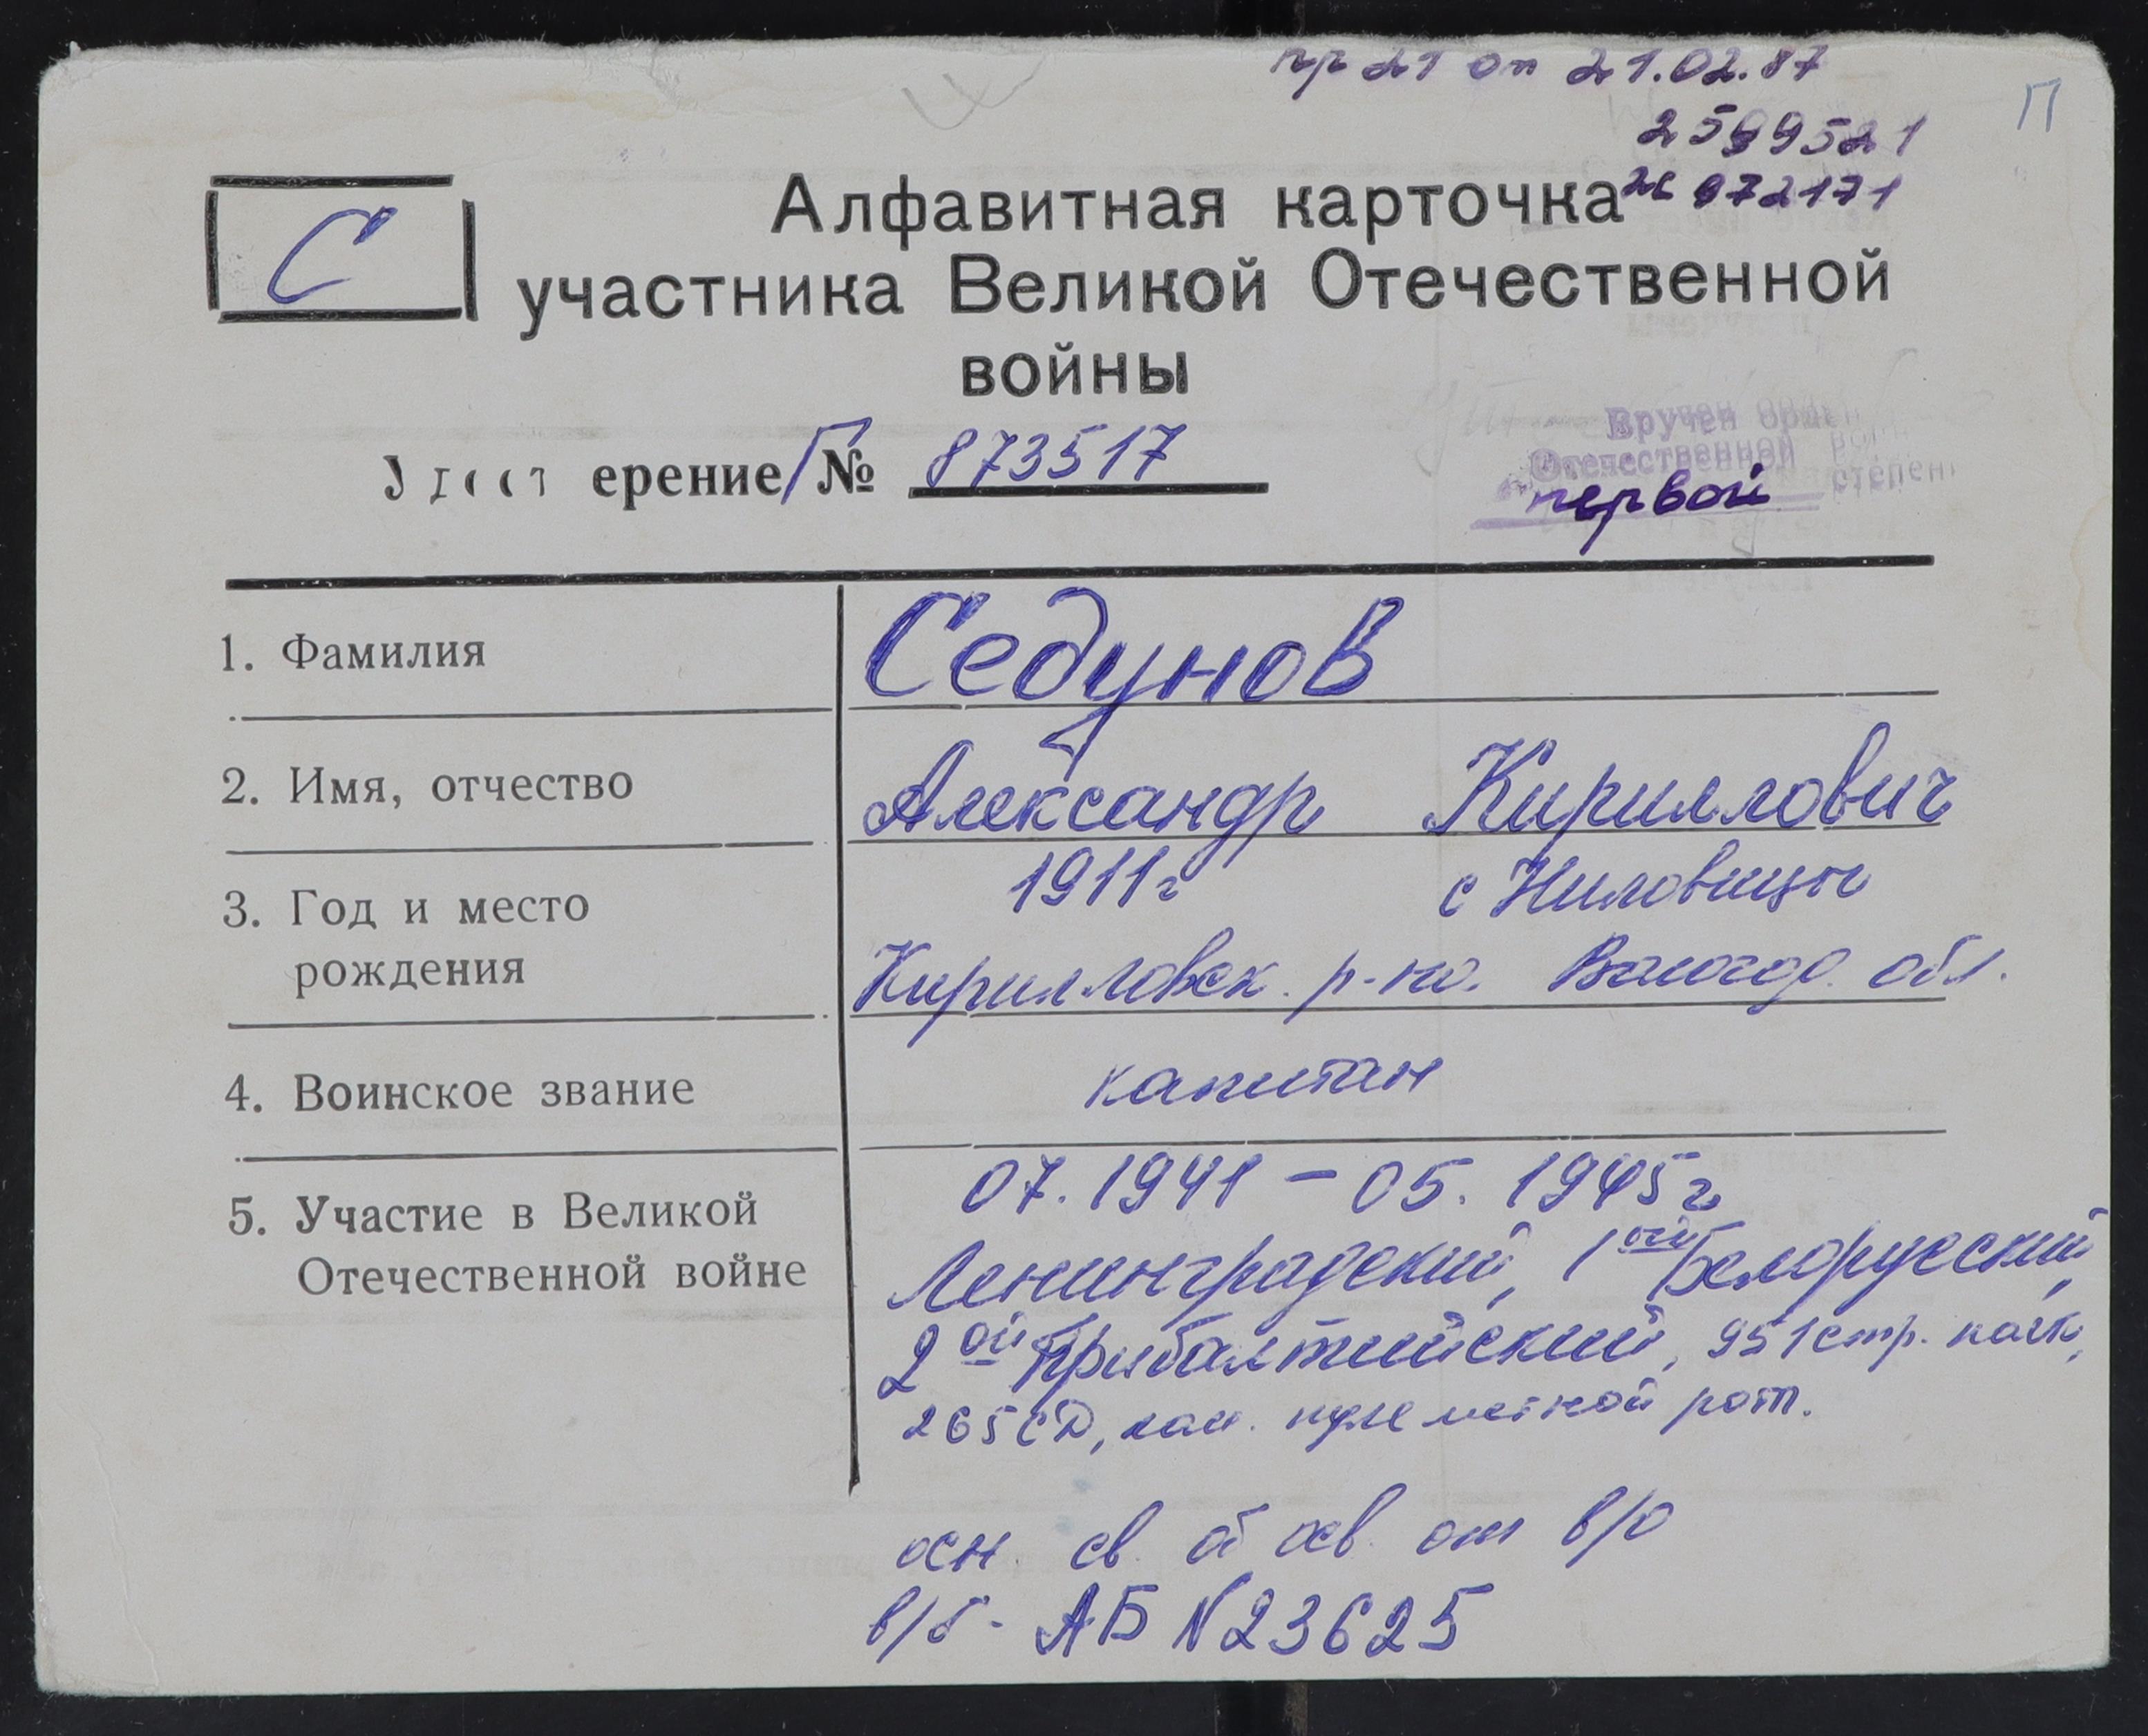 пр 21 от 21.02.87
П
2599521
С
Алфавитная карточка
участника Великой Отечественной
войны
ерение/Г № 873517
Вручен орден
Отечественной войны
первой степени
1. Фамилия
Седунов
2. Имя, отчество
Александр Кириллович
3. Год и место
рождения
1911г с Ниловицы
Кирилловск. р-на. Вологод. обл.
4. Воинское звание
капитан
5. Участие в Великой
Отечественной войне
07. 1941 – 05. 1945г
Ленинградский, 1ой Белорусский,
2ой Прибалтийский, 951 стр. полк,
265 СД, ком. пулеметной рот.
осн. св. об осв. от в/о
в/б - АБ N23625